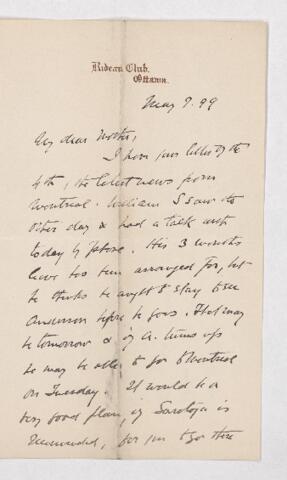 Rideau Club,
Ottawa.
May 7. 99
My dear Mother,
I have your letter of the
4th, the latest news from
Montreal. William I saw the
other day & had a talk with
today by phone. His 3 months
leave has been arranged for, but
he thinks he ought to stay to see
Anderson before he goes. That may
be tomorrow & if A. turns up
he may be able to go to Montreal
on Tuesday. It would be a
very good plan, if Saratoga is
recommended, for you to go there